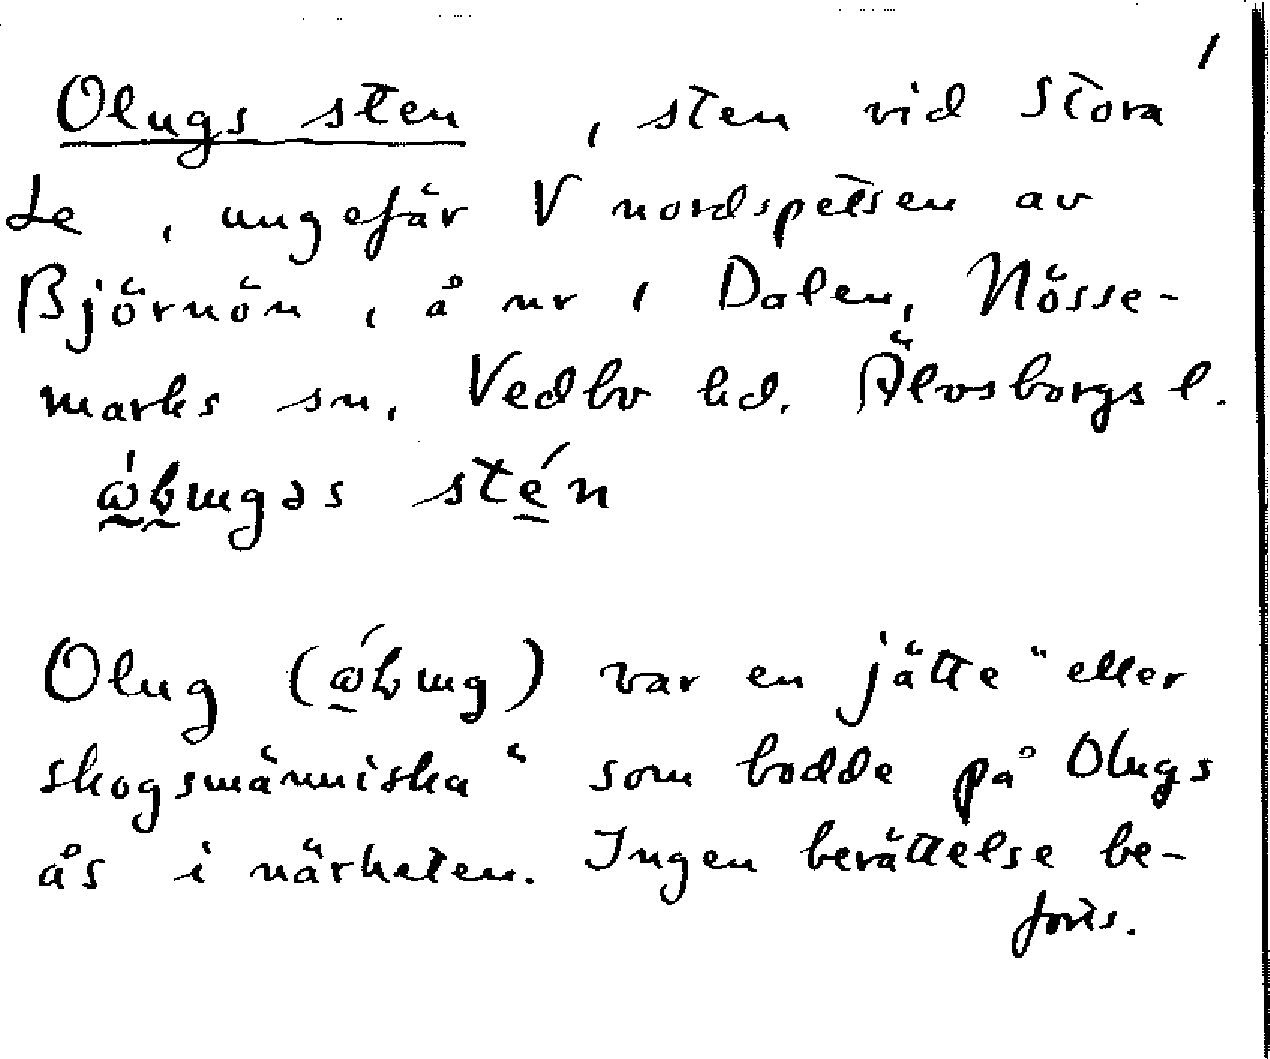 1
Olugs sten , sten vid Stora
Le , ungefär V nordspetsen av
Björnön , å nr 1 Dalen, Nösse-
marks sn, Vedbo hd. Älvsborgs l.
stén
Olug ( ) var en jätte "eller
skogsmänniska" som bodde på Olugs
ås i närheten. Ingen berättelse be-